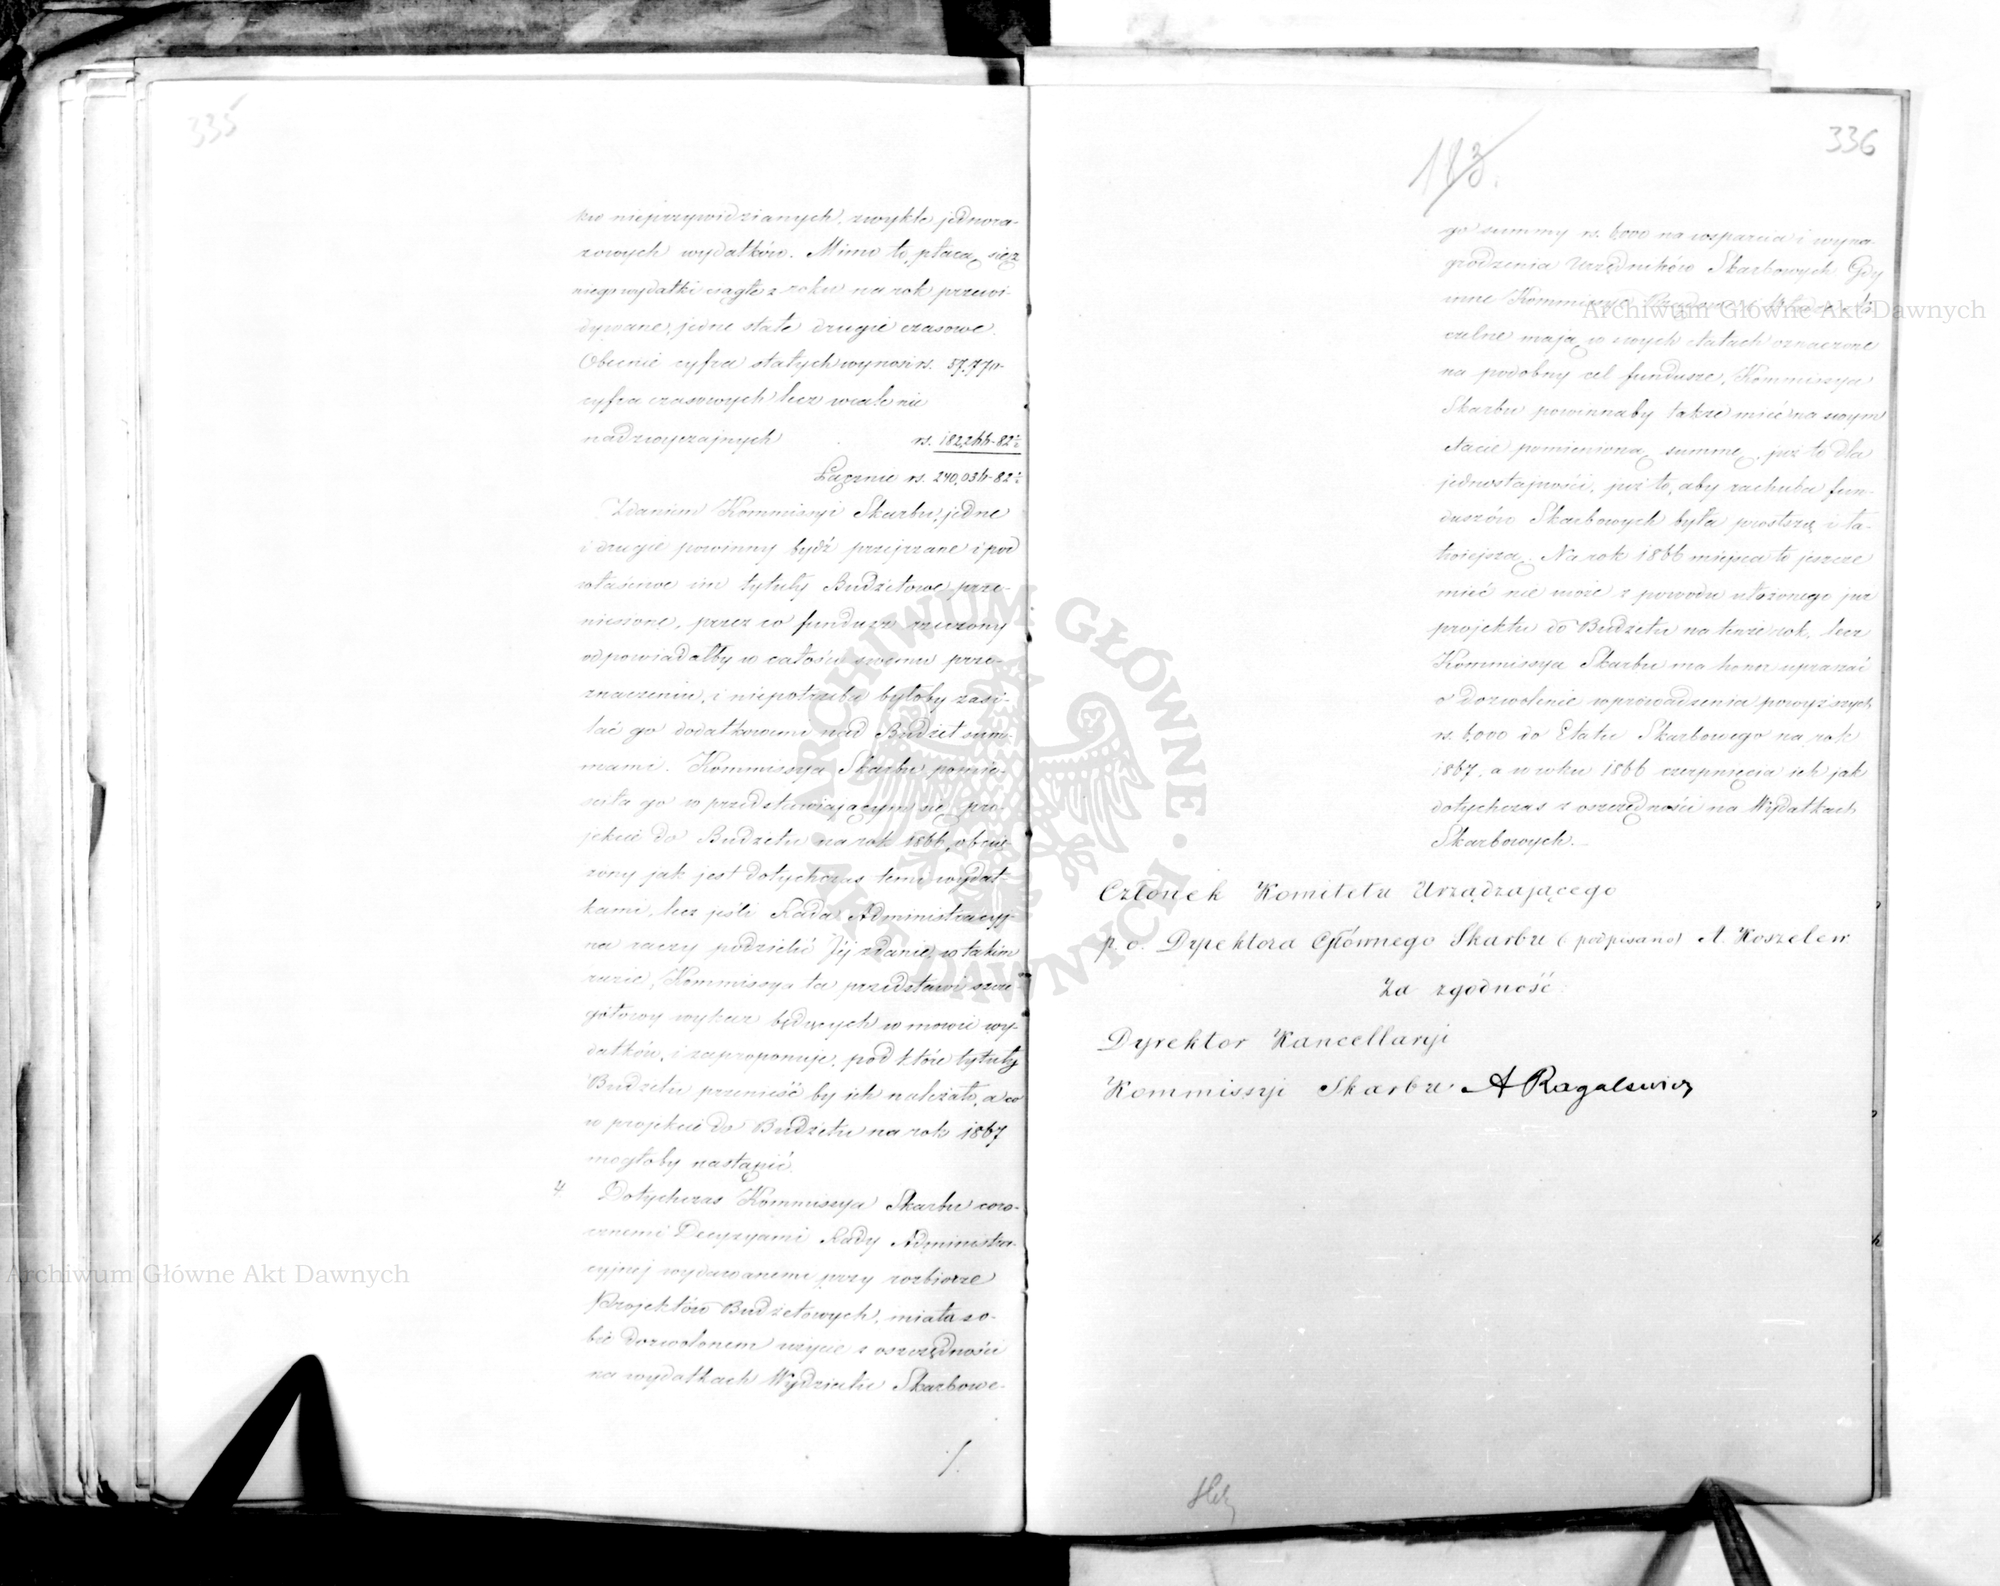 335
ków nieprzywidzianych, zwykle jednora-
zowych wydatków. Mimo to, płacą się z
niego wydatki ciągłe z roku na rok przewi-
dywane, jedne stałe drugie czasowe.
Obecnie cyfra stałych wynosi rs. 57,770 -
cyfra czasowych lecz wcale nie
nadzwyczajnych rs. 182,266-82½
Łącznie rs. 240,036-82½
Zdaniem Kommissyi Skarbu, jedne
i drugie powinny bydź przejrzane i pod
właściwe im tytuły Budżetowe prze-
niesione, przez co fundusz rzeczony
odpowiadałby w całości swemu prze-
znaczeniu, i niepotrzeba byłoby zasi-
lać go dodatkowemi nad Budżet sum-
mami. Kommissya Skarbu pomie-
ściła go w przedstawiającym się pro-
jekcie do Budżetu na rok 1866, obcią-
żony jak jest dotychczas temi wydat-
kami, lecz jeśli Rada Administracyj-
na raczy podzielić Jéj zdanie, w takim
razie, Kommissya ta przedstawi szcze-
gółowy wykaz będących w mowie wy-
datków, i zaproponuje, pod które tytuły
Budżetu przenieść by ich należało, a co
w projekcie do Budżetu na rok 1867
mogłoby nastąpić.
4. Dotychczas Kommissya Skarbu coro-
cznemi Decyzyami Rady Administra-
cyjnej wydawanemi przy rozbiorze
Projektów Budżetowych, miała so-
bie dozwolonem użycie z oszczędności
na wydatkach Wydziału Skarbowe-
/.
183.
336
go summy rs. 6,000 na wsparcia i wyna-
grodzenia Urzędników Skarbowych. Gdy
inne Kommissye Rządowe i Władze
czelne mają w swych etatach oznaczone
na podobny cel fundusze, Kommissya
Skarbu powinnaby także mieć na swym
etacie pomienioną summę, już to dla
jednostajności, już to, aby rachuba fun-
duszów Skarbowych była prostszą i ła-
twiejszą. Na rok 1866 miejsca to jeszcze
mieć nie może z powodu ułożonego już
projektu do Budżetu na tenże rok, lecz
Kommissya Skarbu ma honor upraszać
o dozwolenie wprowadzenia powyższych
rs. 6,000 do Etatu Skarbowego na rok
1867, a w roku 1866 czerpnięcia ich jak
dotychczas z oszczędności na Wydatkach
Skarbowych.
Członek Komitetu Urządzającego
p. o. Dyrektora Głównego Skarbu (podpisano) A. Koszelew.
Za zgodność
Dyrektor Kancellaryi
Kommissyi Skarbu A Ragalewicz
Archiwum Główne Akt Dawnych
Archiwum Główne Akt Dawnych
ARCHIWUM GŁÓWNE · AKT DAWNYCH ·